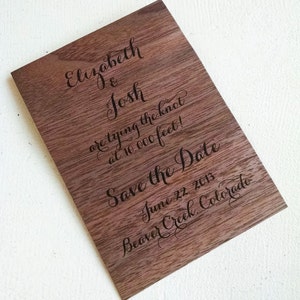 Elizabeth
&
Josh
are tying the knot
at 10 000 feet!
Save the Date
June 22 2013
Beaver Creek Colorado